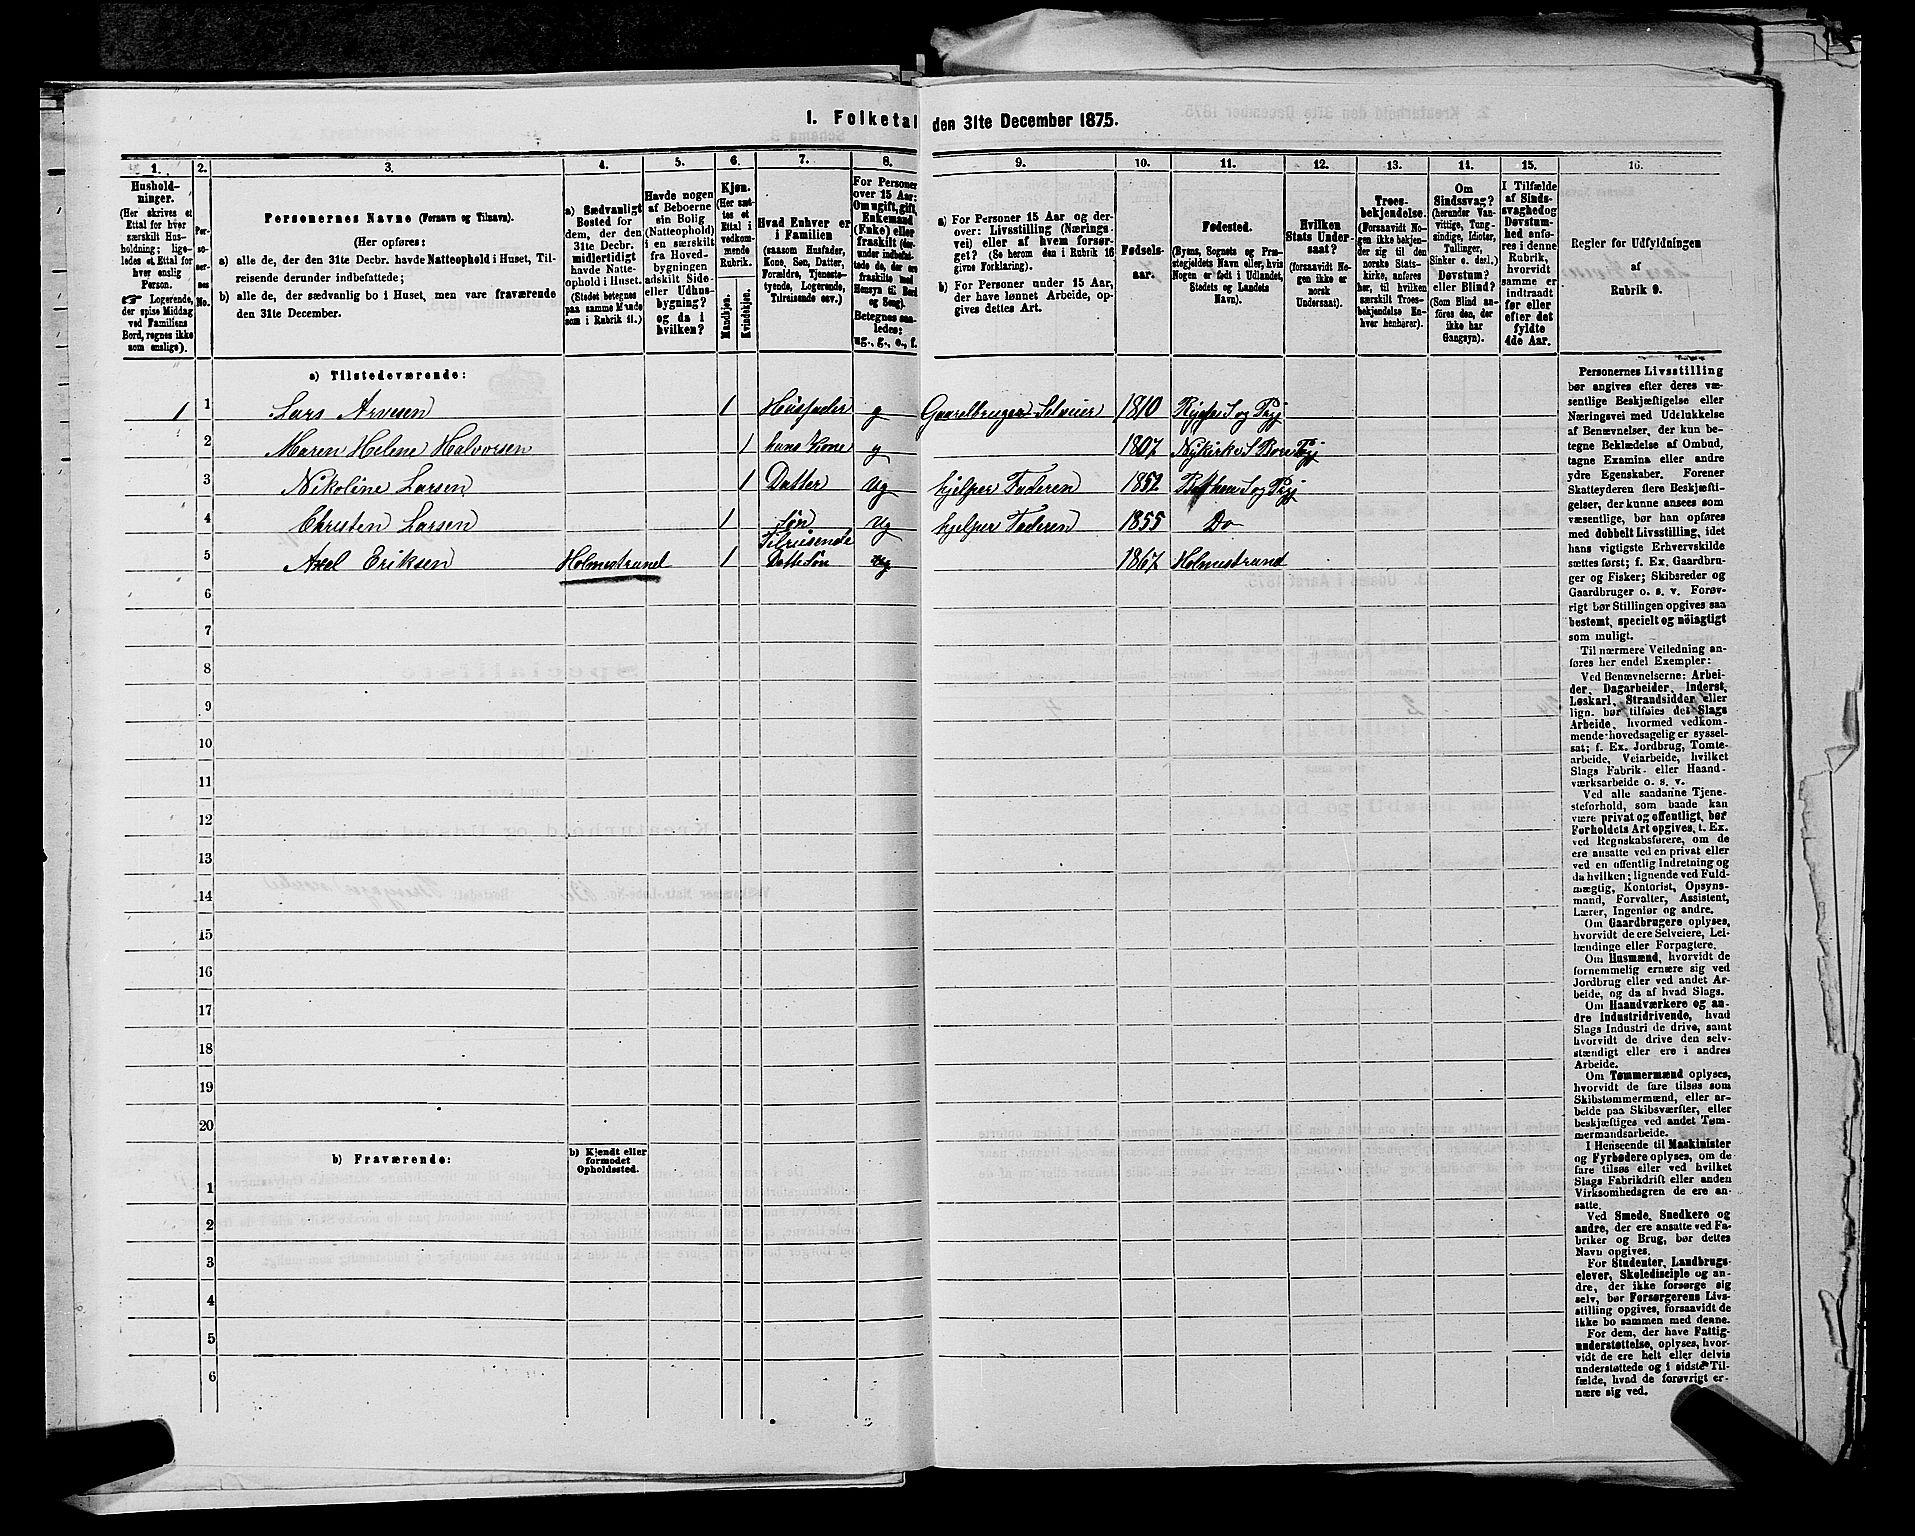 I. Folketal den 31te December 1875.
1. 2. 3. 4. 5. 6. 7. 8. 9. 10. 11. 12. 13. 14. 15. 16.
Hushold-
ninger.
(Her skrives et
Ettal for hver
særskilt Hus-
holdning; lige-
ledes et Ettal for
hver enslig
Person.
☞ Logerende,
der spise Middag
ved Familiens
Bord, regnes ikke
som enslige).
Per-
so-
ner-
nes
No.
Personernes Navne (Fornavn og Tilnavn).
(Her opføres:
a) alle de, der den 31te Decbr. havde Natteophold i Huset, Til-
reisende derunder indbefattede;
b) alle de, der sædvanlig bo i Huset, men vare fraværende
den 31te December.
a) Sædvanligt
Bosted for
dem, der den
31te Decbr.
midlertidigt
havde Natte-
ophold i Huset.
(Stedet betegnes
paa samme Maade
som i Rubrik 11.)
Havde nogen
af Beboerne
sin Bolig
(Natteophold)
i en særskilt
fra Hoved-
bygningen
adskilt Side-
eller Udhus-
bygning?
og da i
hvilken?
Kjøn.
(Her sæt-
tes et
Ettal i
vedkom-
mende
Rubrik.
Mandkjøn.
Kvindekjøn.
Hvad Enhver er
i Familien
(saasom Husfader,
Kone, Søn, Datter,
Forældre, Tjeneste-
tyende, Logerende,
Tilreisende osv.)
For Personer
over 15 Aar:
Om ugift, gift,
Enkemand
(Enke) eller
fraskilt (der-
under indbefat-
tede de, der ere
fraskilte med
Hensyn til Bord
og Seng).
Betegnes saa-
ledes:
ug., g., e., f.
a) For Personer 15 Aar og der-
over: Livsstilling (Nærings-
vei) eller af hvem forsør-
get? (Se herom den i Rubrik 16
givne Forklaring).
b) For Personer under 15 Aar,
der have lønnet Arbeide, op-
gives dettes Art.
Fødsels-
aar.
Fødested.
(Byens, Sognets og Præ-
stegjeldets Navn eller, hvis
Nogen er født i Udlandet,
Stedets og Landets
Navn).
Hvilken
Stats Under-
saat?
(forsaavidt No-
gen ikke er
norsk
Undersaat).
Troes-
bekjendelse.
(Forsaavidt No-
gen ikke bekjen-
der sig til den
norske Stats-
kirke, anføres
her, til hvilken
særskilt Troes-
bekjendelse En-
hver henhører).
Om
Sindssvag?
(herunder Van-
vittige, Tung-
sindige, Idioter,
Tullinger,
Sinker o. desl.)
Døvstum?
eller Blind?
(Som Blind an-
føres den, der
ikke har
Gangsyn).
I Tilfælde
af Sinds-
svaghed og
Døvstum-
hed anfø-
res i denne
Rubrik,
hvorvidt
samme er
indtraadt
før eller
efter det
fyldte
4de Aar.
Regler for Udfyldningen
af
Rubrik 9.
a) Tilstedeværende:
1 1 Lars Arvesen 1 Husfader g Gaardbruger Selveier 1810 Rygge S og Prgj
2 Maren Helene Halvorsen 1 hans Kone g 1807 Nykirke S Borre Prgj
3 Nikoline Larsen 1 Datter ug hjelper Faderen 1852 Botne S og Prgj
4 Christen Larsen 1 Søn ug hjelper Faderen 1855 Do
5 Axel Eriksen Holmestrand 1 Tilreisende Dattesøn ug 1867 Holmestrand
6
7
8
9
10
11
12
13
14
15
16
17
18
19
20
b) Fraværende:
b) Kjendt eller
formodet
Opholdssted.
1
2
3
4
5
6
Personernes Livsstilling
bør angives efter deres væ-
sentlige Beskjæftigelse eller
Næringsvei med Udelukkelse
af Benævnelser, der kun be-
tegne Beklædelse af Ombud,
tagne Examina eller andre
ydre Egenskaber. Forener
Skatteyderen flere Beskjæfti-
gelser, der kunne ansees som
væsentlige, bør han opføres
med dobbelt Livsstilling, idet
hans vigtigste Erhvervskilde
sættes først; f. Ex. Gaardbru-
ger og Fisker; Skibsreder og
Gaardbruger o. s. v. Forøv-
rigt bør Stillingen opgives saa
bestemt, specielt og nøiagtigt
som muligt.
Til nærmere Veiledning an-
føres her endel Exempler:
Ved Benævnelserne: Arbei-
der, Dagarbeider, Inderst,
Løskarl, Strandsidder eller
lign. bør tilføies det Slags
Arbeide, hvormed vedkom-
mende hovedsagelig er syssel-
sat; f. Ex. Jordbrug, Tomte-
arbeide, Veiarbeide, hvilket
Slags Fabrik- eller Haand-
værksarbeide o. s. v.
Ved alle saadanne Tjene-
steforhold, som baade kan
være privat og offentligt, bør
Forholdets Art opgives, t. Ex.
ved Regnskabsførere, om de
ere ansatte ved en privat eller
ved en offentlig Indretning og
da hvilken; lignende ved Fuld-
mægtig, Kontorist, Opsyns-
mand, Forvalter, Assistent,
Lærer, Ingeniør og andre.
Om Gaardbrugere oplyses,
hvorvidt de ere Selveiere, Lei-
lændinge eller Forpagtere.
Om Husmænd, hvorvidt de
fornemmelig ernære sig ved
Jordbrug eller ved andet Ar-
beide, og da af hvad Slags.
Om Haandværkere og an-
dre Industridrivende, hvad
Slags Industri de drive, samt
hvorvidt de drive den selv-
stændigt eller ere i andres
Arbeide.
Om Tømmermænd oplyses,
hvorvidt de fare tilsøs som
Skibstømmermænd, eller ar-
beide paa Skibsværfter, eller
beskjæftiges ved andet Tøm-
mermandsarbeide.
I Henseende til Maskinister
og Fyrbødere oplyses, om de
fare tilsøs eller ved hvilket
Slags Fabrikdrift eller anden
Virksomhedsgren de ere an-
satte.
Ved Smede, Snedkere og
andre, der ere ansatte ved Fa-
briker og Brug, bør dettes
Navn opgives.
For Studenter, Landbrugs-
elever, Skoledisciple og an-
dre, der ikke forsørge sig
selv, bør Forsørgerens Livs-
stilling opgives, forsaavidt de
ikke bo sammen med denne.
For dem, der have Fattig-
understøttelse, oplyses, hvor-
vidt de ere helt eller delvis
understøttede og i sidste Til-
fælde, hvad de forøvrigt er-
nære sig ved.